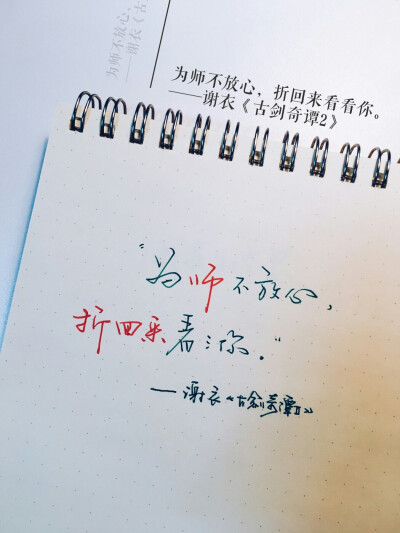 为师不放心，
——谢衣《古
为师不放心，折回来看看你。
——谢衣《古剑奇谭2》
“为师不放心，
折回来看〻你。”
——谢衣《古剑奇谭II》